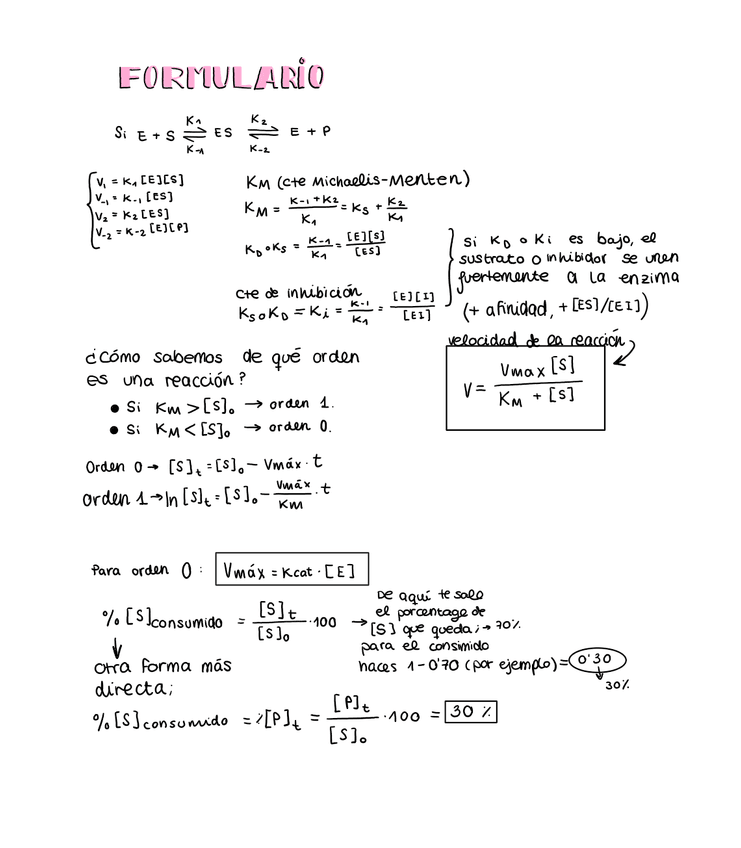 FORMULARIO
Si E + S ⇌ ES ⇌ E + P
K1 K2
K-1 K-2
V1 = K1 [E][S]
V-1 = K-1 [ES]
V2 = K2 [ES]
V-2 = K-2 [E][P]
KM (cte Michaelis-Menten)
KM = (K-1 + K2)/K1 = KS + K2/K1
KD o KS = K-1/K1 = [E][S]/[ES]
cte de inhibición
KS o KD = Ki = K-1/K1 = [E][I]/[EI]
si KD o Ki es bajo, el
sustrato o inhibidor se unen
fuertemente a la enzima
(+ afinidad, + [ES]/[EI])
velocidad de la reacción
V = Vmax [S]/(KM + [S])
¿Cómo sabemos de qué orden
es una reacción?
● Si KM > [S]o → orden 1.
● Si KM < [S]o → orden 0.
Orden 0 → [S]t = [S]o − Vmáx · t
orden 1 → ln [S]t = [S]o − Vmáx/KM · t
Para orden 0 : Vmáx = Kcat · [E]
% [S]consumido = [S]t/[S]o · 100 →
De aquí te sale
el porcentage de
[S] que queda ; → 70%
para el consimido
haces 1 − 0'70 (por ejemplo) = 0'30
30%
otra forma más
directa;
% [S]consumido = %[P]t = [P]t/[S]o · 100 = 30 %